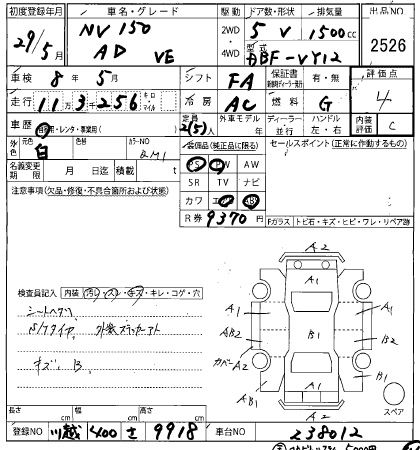 初度登録年月 車名・グレード 駆動 ドア数・形状 排気量 出品NO
29/5月 NV150 AD VE 2WD 4WD 5 V 1500cc 2526
型式 ABF-VY12
車検 8年 5月 シフト FA 保証書 有・無 評価点
走行 11万3千256 キロ マイル 冷房 AC 燃料 G 4
車歴 自家用・レンタ・事業用( ) 定員 2(5)人 外車モデル 年 ディーラー・並行 ハンドル 左・右 内装評価 C
外色 元色 白 色替 カラーNO QM1 装備品(純正品に限る) セールスポイント(正常に作動するもの)
名義変更期限 月 日迄 積載 t
PS PW AW
SR TV ナビ
カワ エアB ABS
注意事項(欠品・修復・不具合箇所および状態)
R券 9370円
Fガラス・トビ石・キズ・ヒビ・ワレ・リペア跡
検査員記入 内装(汚レ・スレ・キズ・キレ・コゲ・穴
シートヘタリ
S/Tタイヤ、外装ステッカーアト
キズ B
A2
A1
A1 A1
AB2 B1 B2
カバーA2 B1
AB1 A1
A2
スペア
長さ cm 幅 cm 高さ cm
登録NO 川越 400 さ 9918 車台NO 238012